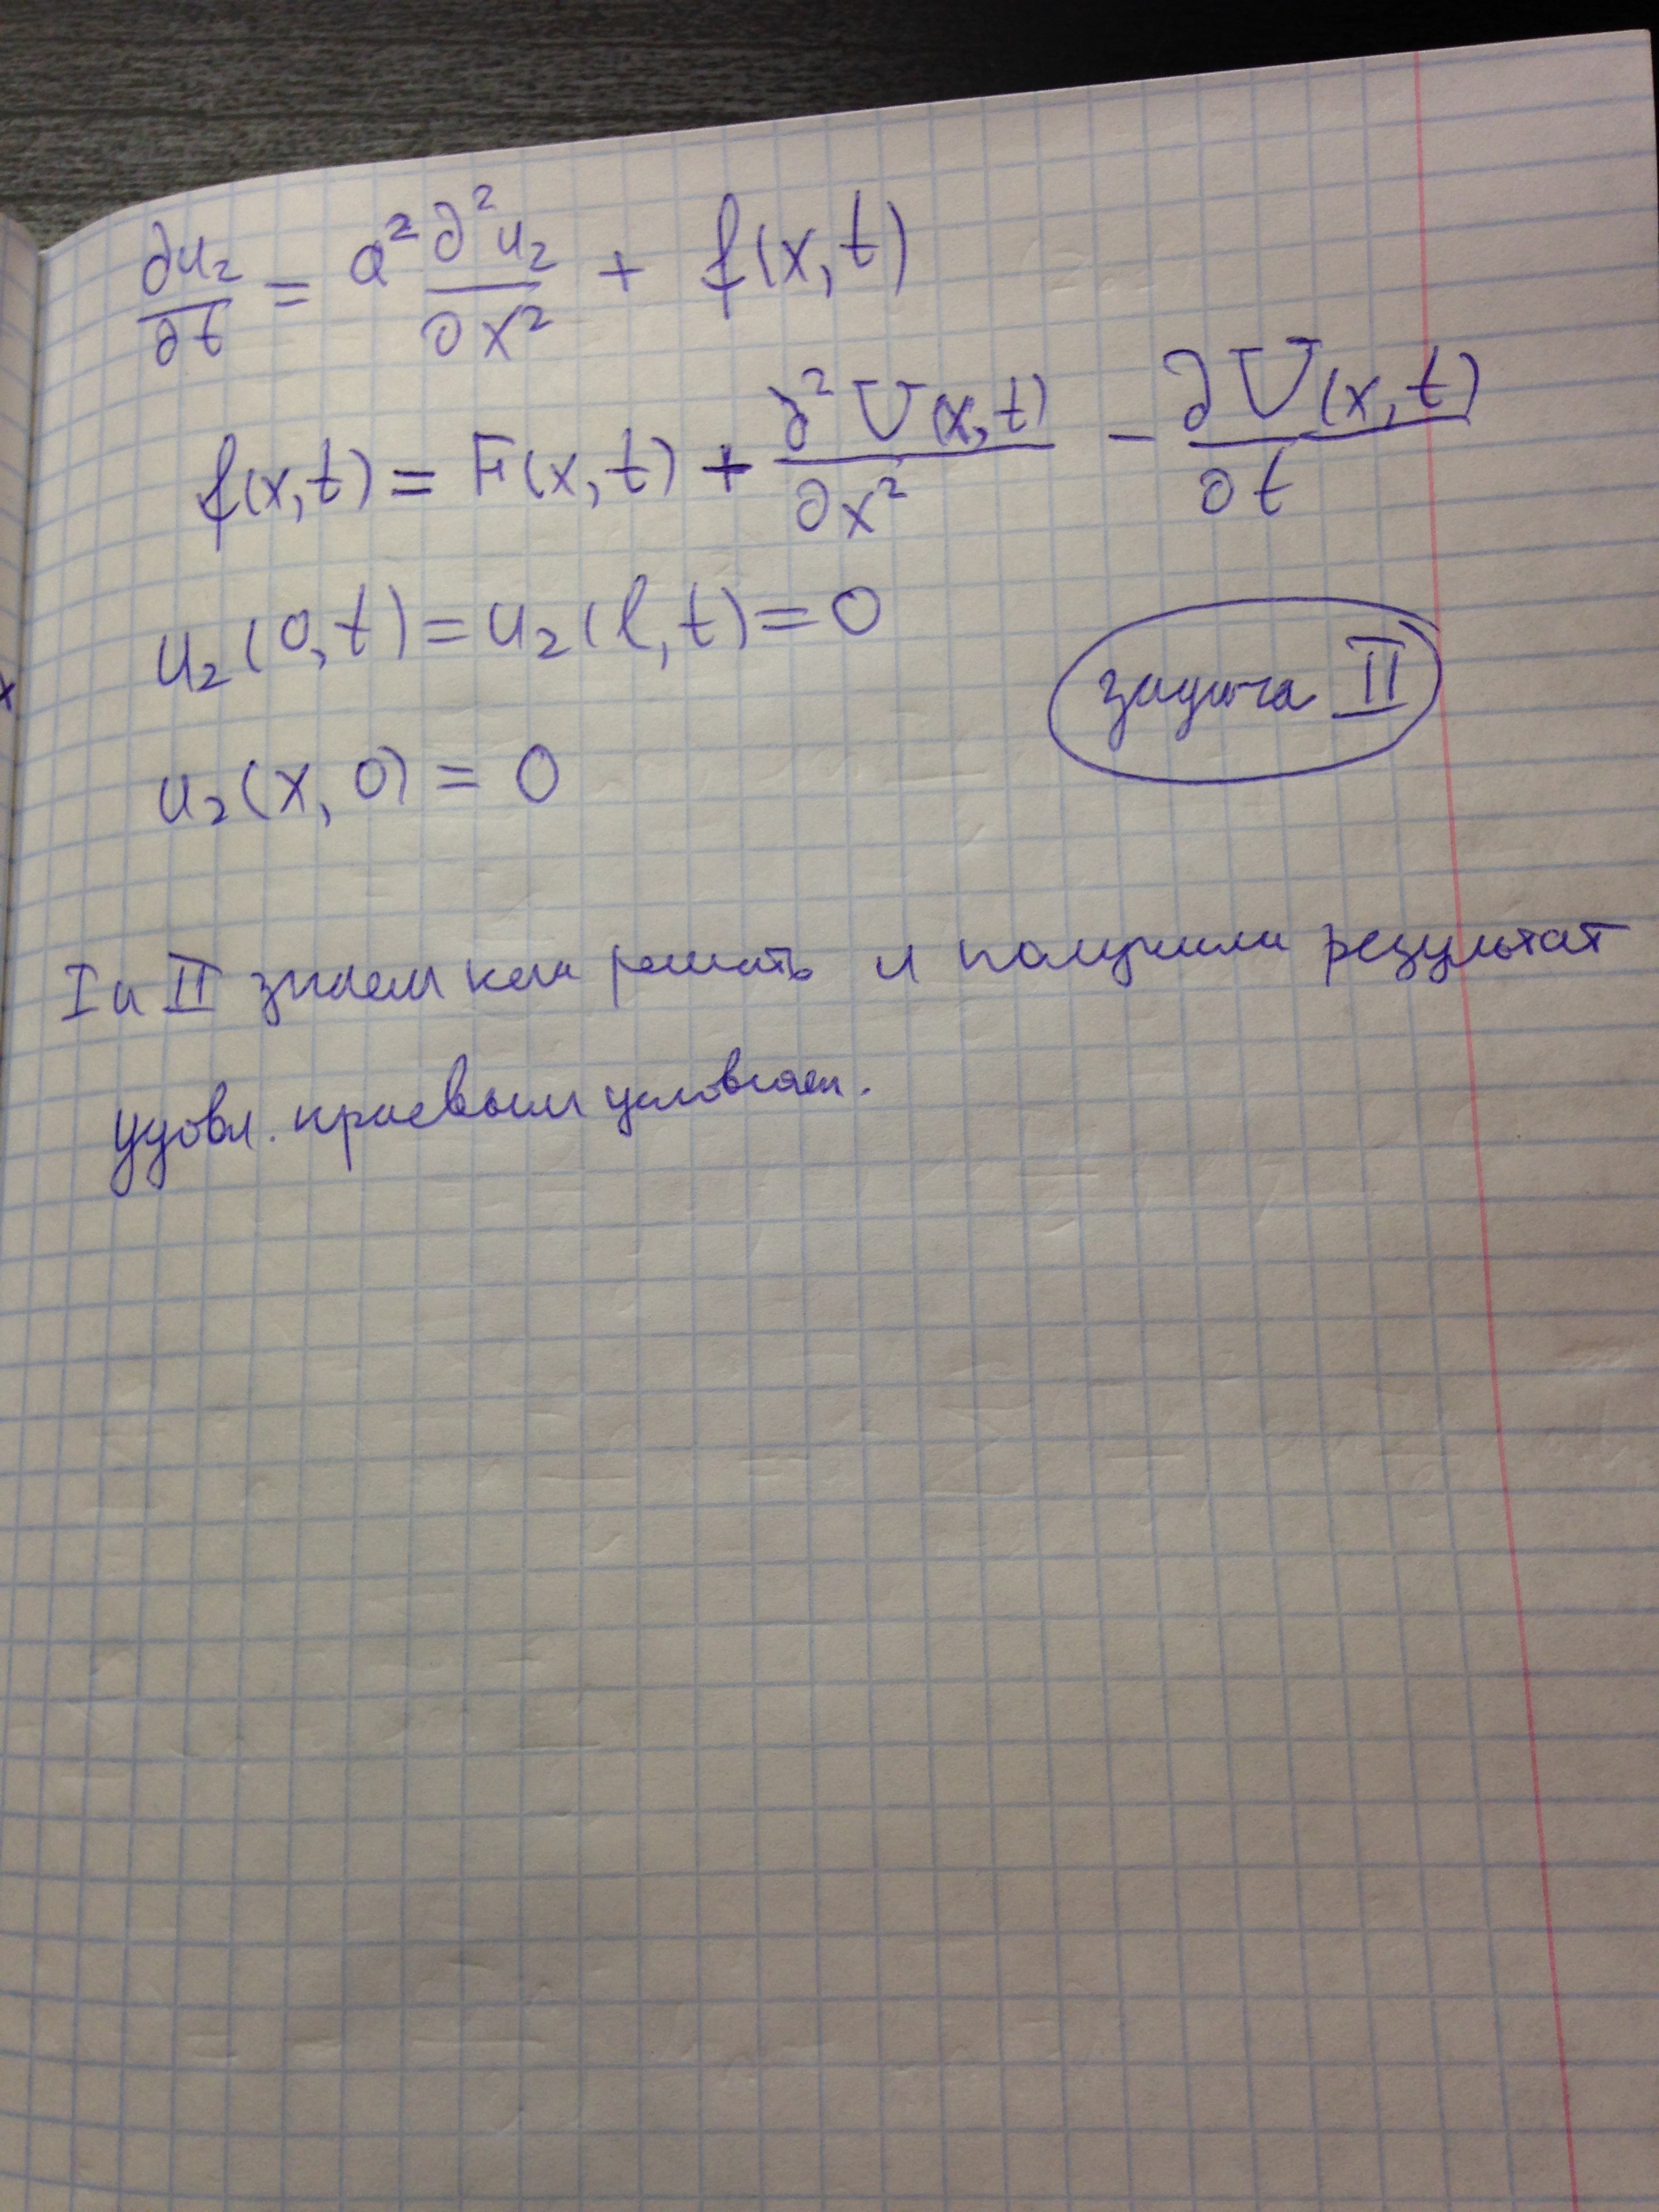 ∂u₂/∂t = a² ∂²u₂/∂x² + f(x,t)
f(x,t) = F(x,t) + ∂²U(x,t)/∂x² − ∂U(x,t)/∂t
u₂(0,t) = u₂(l,t) = 0
задача II
u₂(x,0) = 0
I и II знаем как решать и получили результат
удовл. краевым условиям.